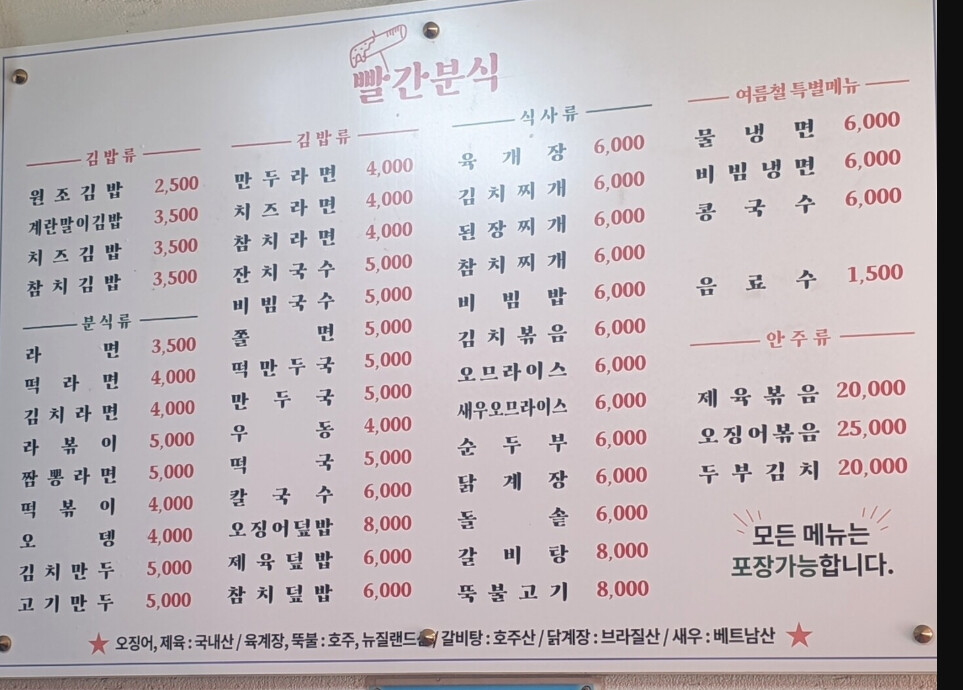 빨간분식
김밥류
원조김밥 2,500
계란말이김밥 3,500
치즈김밥 3,500
참치김밥 3,500
분식류
라면 3,500
떡라면 4,000
김치라면 4,000
라볶이 5,000
짬뽕라면 5,000
떡볶이 4,000
오뎅 4,000
김치만두 5,000
고기만두 5,000
김밥류
만두라면 4,000
치즈라면 4,000
참치라면 4,000
잔치국수 5,000
비빔국수 5,000
쫄면 5,000
떡만두국 5,000
만두국 5,000
우동 4,000
떡국 5,000
칼국수 6,000
오징어덮밥 8,000
제육덮밥 6,000
참치덮밥 6,000
식사류
육개장 6,000
김치찌개 6,000
된장찌개 6,000
참치찌개 6,000
비빔밥 6,000
김치볶음 6,000
오므라이스 6,000
새우오므라이스 6,000
순두부 6,000
닭계장 6,000
돌솥 6,000
갈비탕 8,000
뚝불고기 8,000
여름철특별메뉴
물냉면 6,000
비빔냉면 6,000
콩국수 6,000
음료수 1,500
안주류
제육볶음 20,000
오징어볶음 25,000
두부김치 20,000
모든 메뉴는
포장가능합니다.
오징어, 제육 : 국내산 / 육계장, 뚝불 : 호주, 뉴질랜드산 / 갈비탕 : 호주산 / 닭계장 : 브라질산 / 새우 : 베트남산